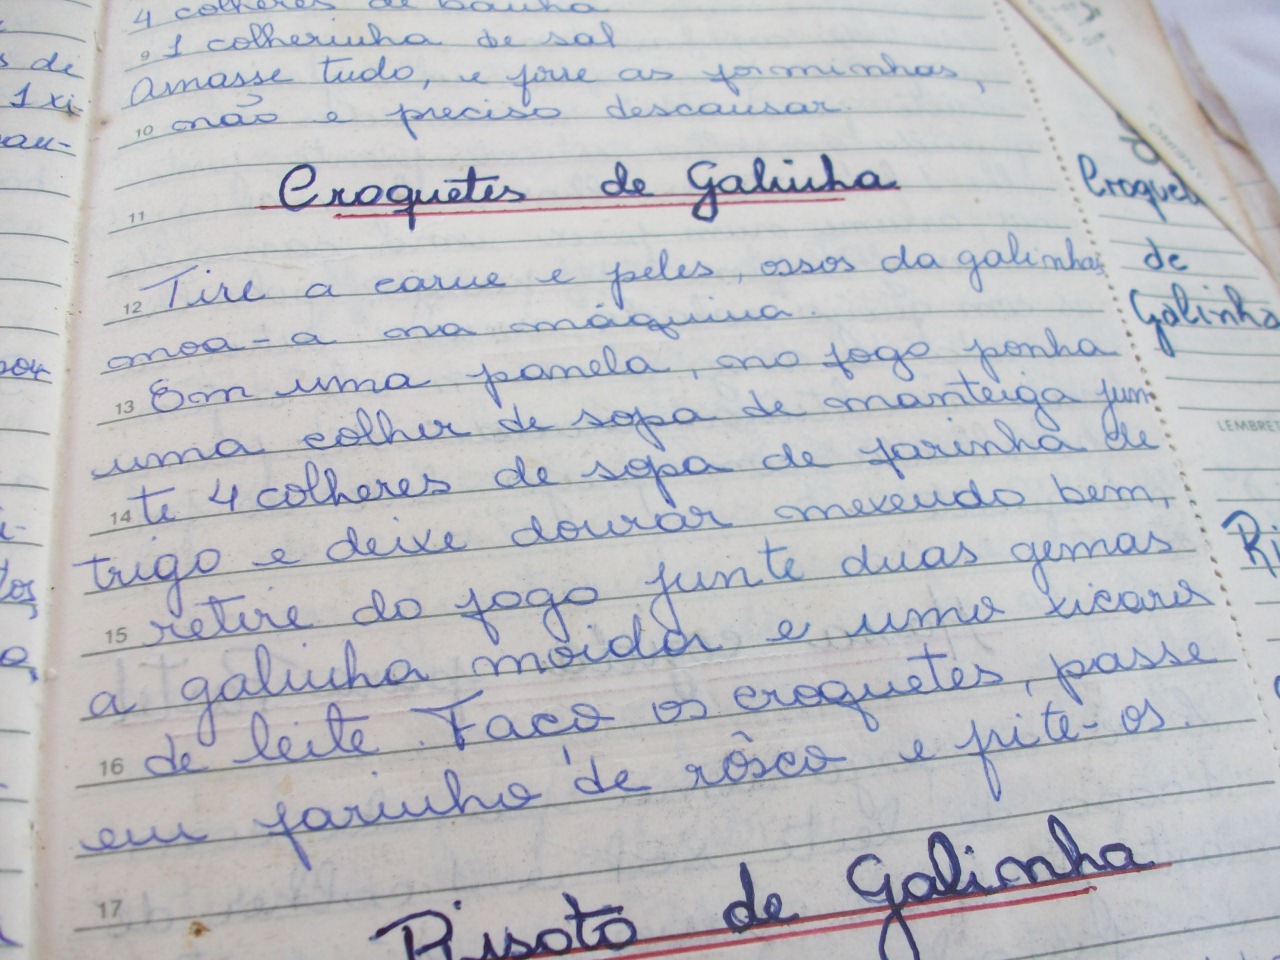 4 colheres de banha
9 1 colherinha de sal
Amasse tudo, e forre as forminhas,
10 não e preciso descansar.
11 Croquetes de Galinha
12 Tire a carne e peles, ossos da galinha,
moa-a na máquina.
13 Em uma panela, no fogo ponha
uma colher de sopa de manteiga jun-
14 te 4 colheres de sopa de farinha de
trigo e deixe dourar mexendo bem,
15 retire do fogo junte duas gemas
a galinha moida e uma xicara
16 de leite. Faca os croquetes, passe
em farinha de rôsca e frite-os.
17
Risoto de Galinha
s de
1 xi
Croquet
de
Galinha
LEMBRET
Ri